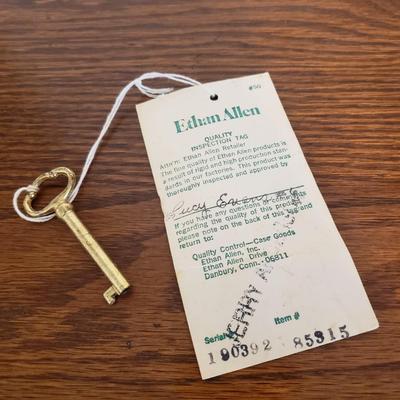 #50
Ethan Allen
QUALITY
INSPECTION TAG
Att'n: Ethan Allen Retailer
The fine quality of Ethan Allen products is
a result of rigid and high production stan-
dards in our factories. This product was
thoroughly inspected and approved by
Lucy
If you have any questions or comments
regarding the quality of this product
please note on the back of this tag and
return to:
Quality Control—Case Goods
Ethan Allen, Inc.
Ethan Allen Drive
Danbury, Conn. 06811
Serial # Item #
190392 85315